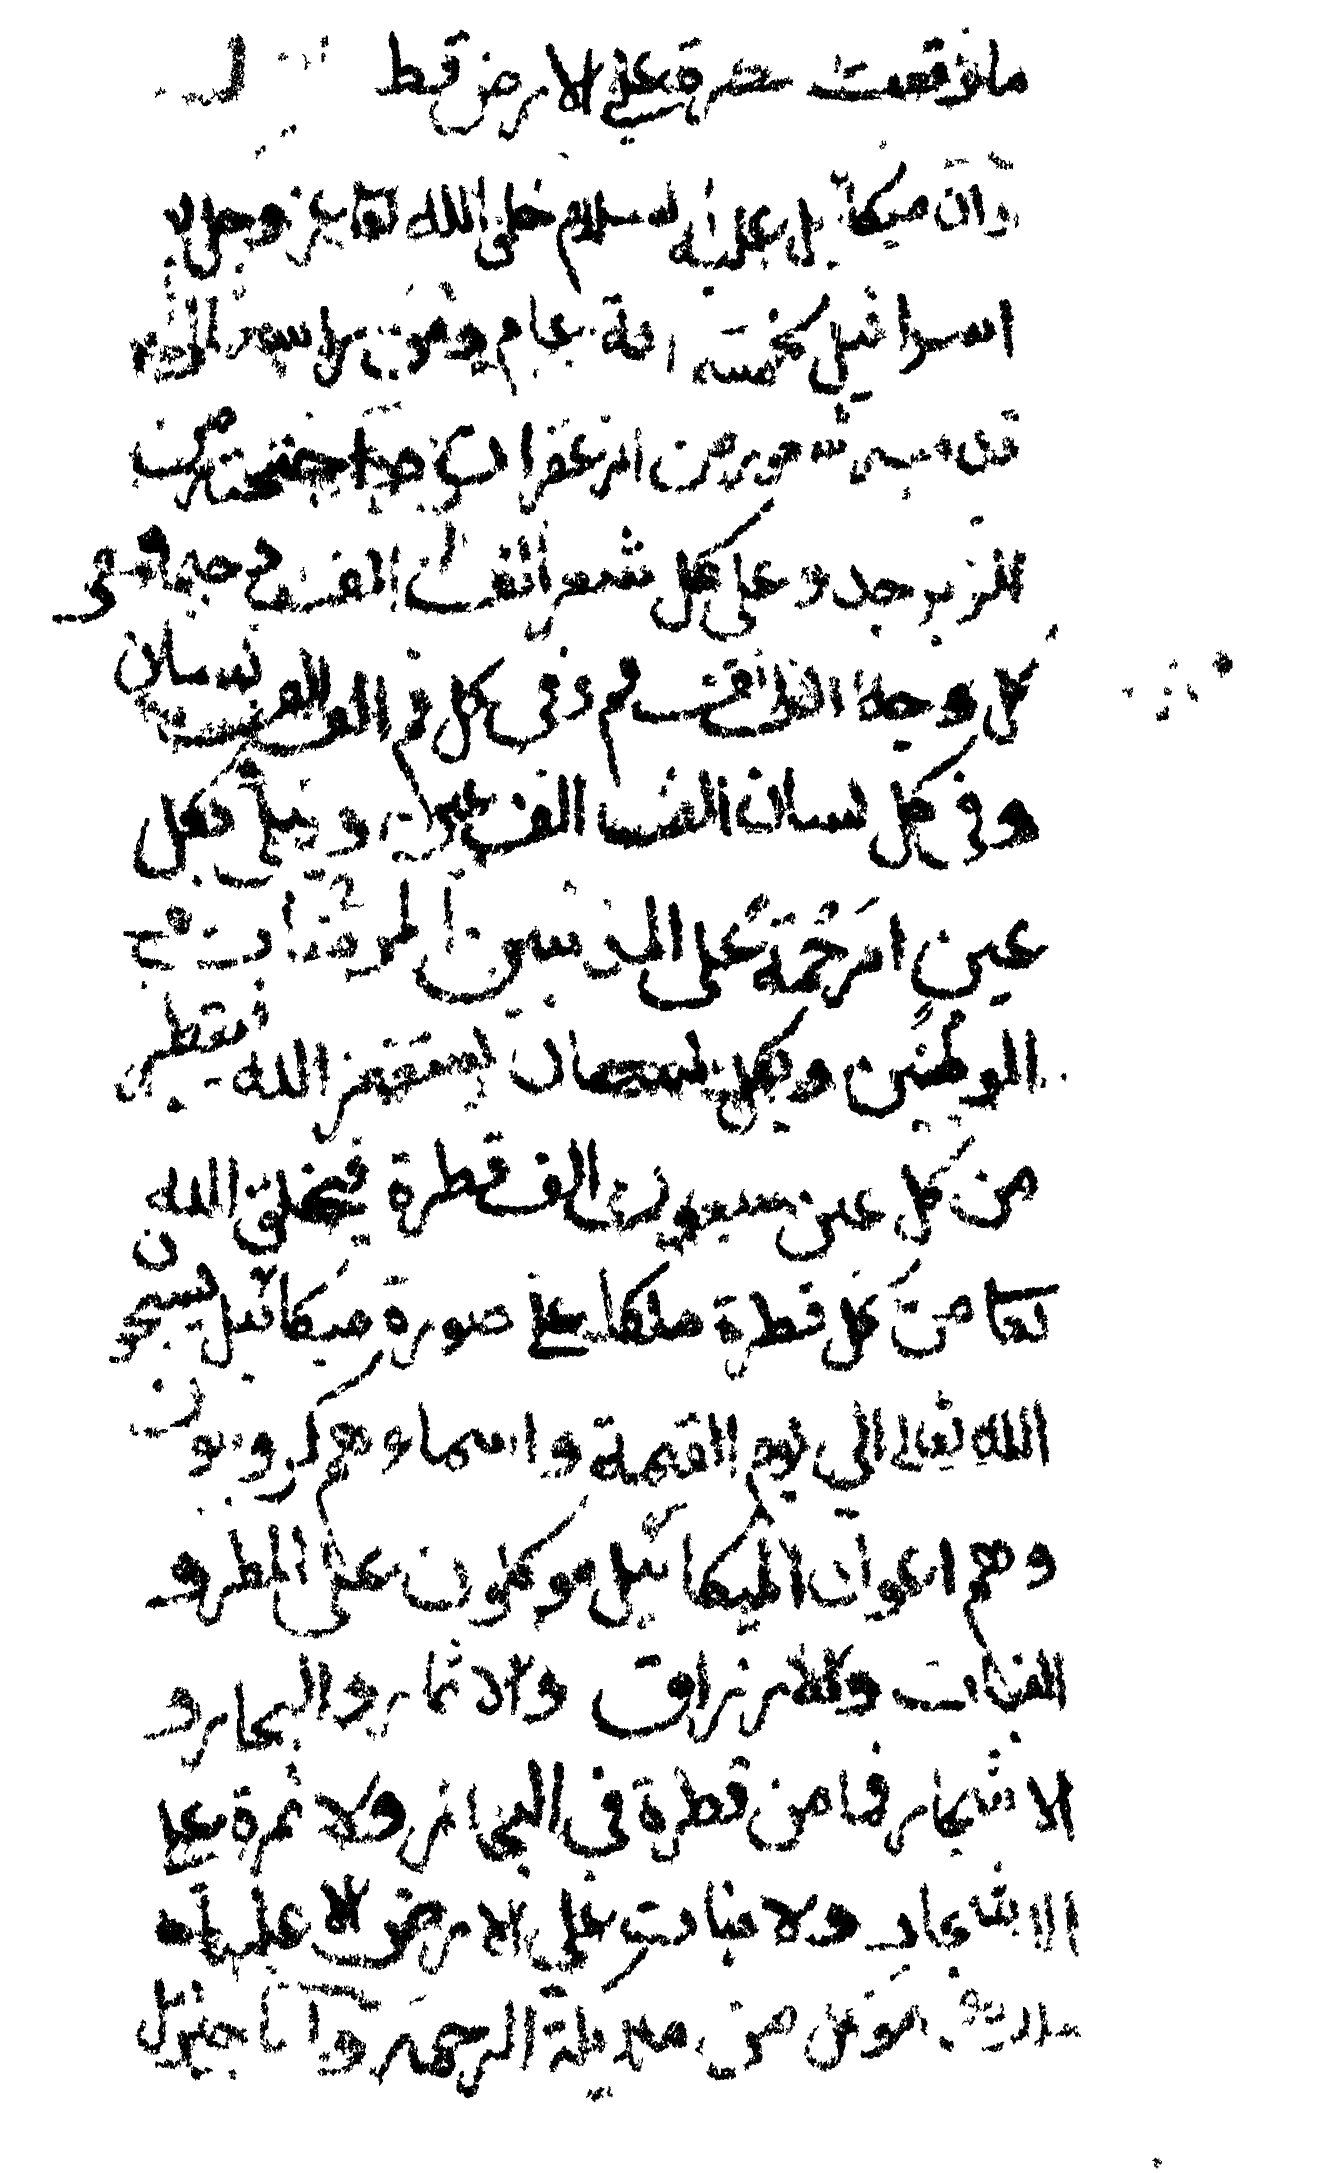 ما وقعت قطرة على الارض قط
وان ميكائيل عليه السلام خلق الله تعا عز وجل بعد
اسرافيل بخمسمائة عام ومن راسه الى
قدميه شعور من الزعفران واجنحته من
الزبرجد وعلى كل شعر الف الف وجه وفى
كل وجه الف الف فم وفى كل فم الف الف لسان
وفى كل لسان الف الف عين ويبكى بكل
عين رحمة على المذنبين من
المؤمنين وبكل لسان يستغفر الله فيقطر
من كل عين سبعون الف قطرة فيخلق الله
تعا من كل قطرة ملكا على صورة ميكائيل يسبحون
الله تعالى الي يوم القيمة واسماوهم كروبيون
وهم اعوان الميكائيل موكلون على المطر و
النبات والارزاق والاثمار والبحار و
الاشجار فما من قطرة فى البحار ولا ثمرة على
الاشجار ولا نبات على الارض الا عليه
موكل من